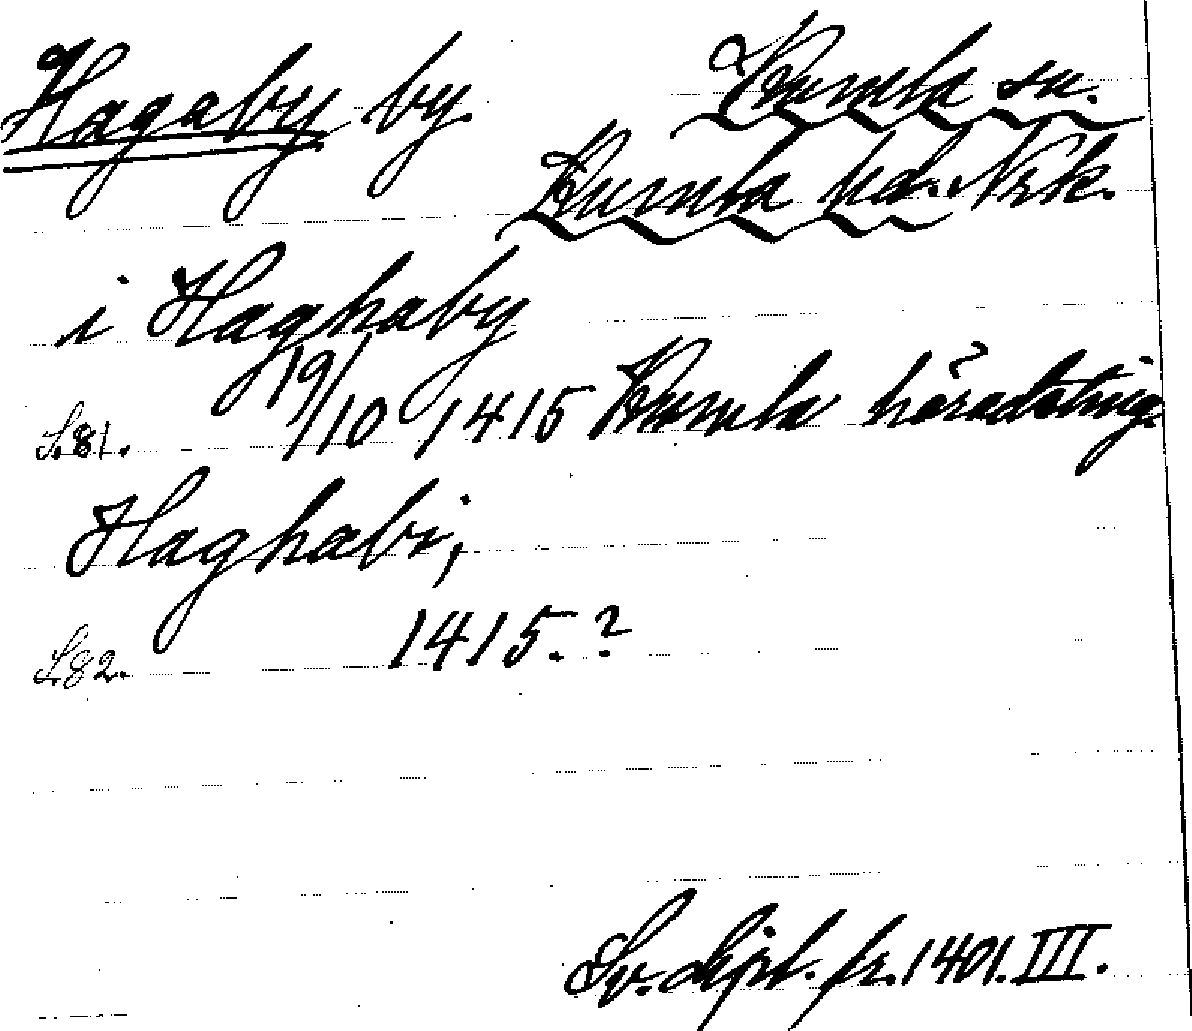 Hagaby by Kumla sn.
Kumla hd. Nrk.
i Haghaby
S.81. 19/10 1415 Kumla häradsting.
Haghabi,
S.82. 1415.?
Sv. dipl. fr. 1401. III.